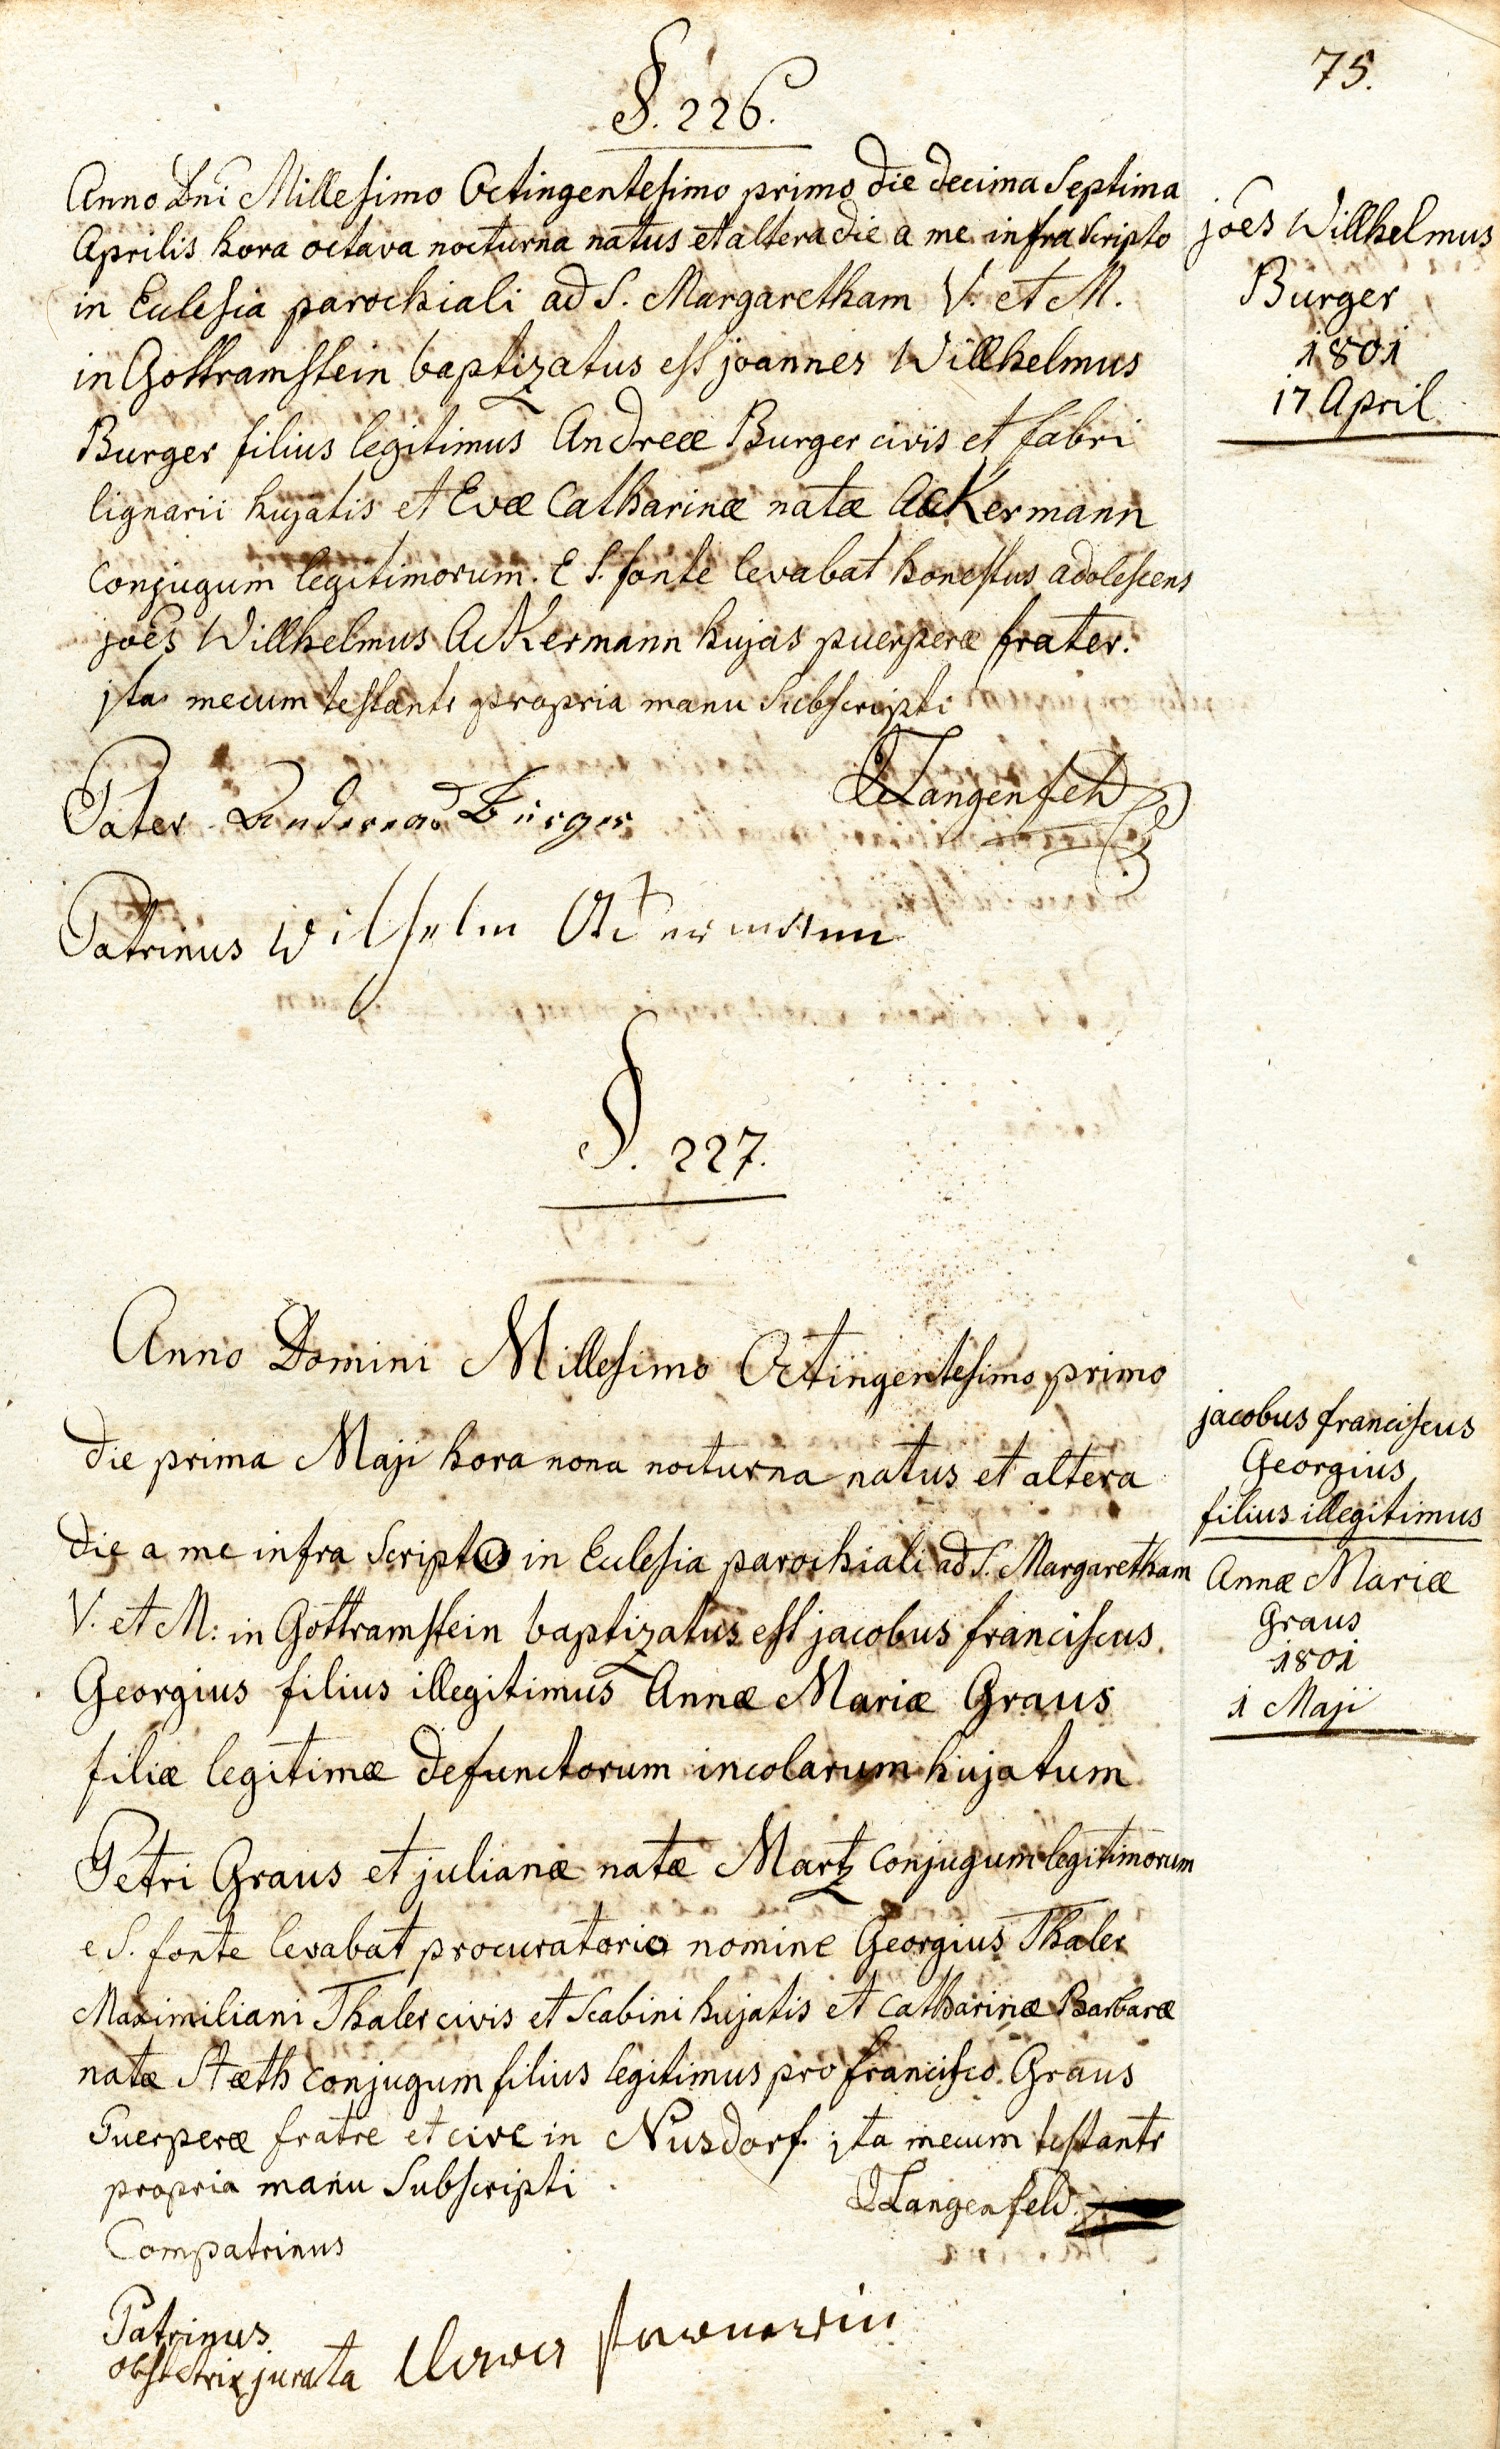 75.
§. 226.
Anno Dni Millesimo Octingentesimo primo die decima Septima
Aprilis hora octava nocturna natus et altera die a me infra scripto
in Eclesia parochiali ad S. Margaretham V. et M.
in Gottramstein baptizatus est joannes Willhelmus
Burger filius legitimus Andreæ Burger civis et fabri
lignarii hujatis et Evæ Catharinæ natæ Ackermann
conjugum legitimorum. E S. fonte levabat honestus adolescens
joēs Willhelmus Ackermann hujas puerperæ frater.
jta mecum testantr propria manu Subscripti
joēs Willhelmus
Burger
1801
17 April
Langenfeld
Pater Andereas Bürger
Patrinus Wilhelm Ackermann
§. 227.
Anno Domini Millesimo Octingentesimo primo
die prima Maji hora nona nocturna natus et altera
die a me infra scripto in Eclesia parochiali ad S. Margaretham
V. et M: in Gottramstein baptizatus est jacobus franciscus
Georgius filius illegitimus Annæ Mariæ Graus
filiæ legitimæ defunctorum incolarum hujatum
Petri Graus et julianæ natæ Martz conjugum legitimorum
e S. fonte levabat procuratorio nomine Georgius Thaler
Maximiliani Thaler civis et Scabini hujatis et Catharinæ Barbaræ
natæ Stæth conjugum filius legitimus pro francisco Graus
Puerperæ fratre et cive in Nusdorf. jta mecum testantr
propria manu Subscripti
jacobus franciscus
Georgius
filius illegitimus
Annæ Mariæ
Graus
1801
1 Maji
Langenfeld
Compatrinus
Patrinus
obstetrix jurata